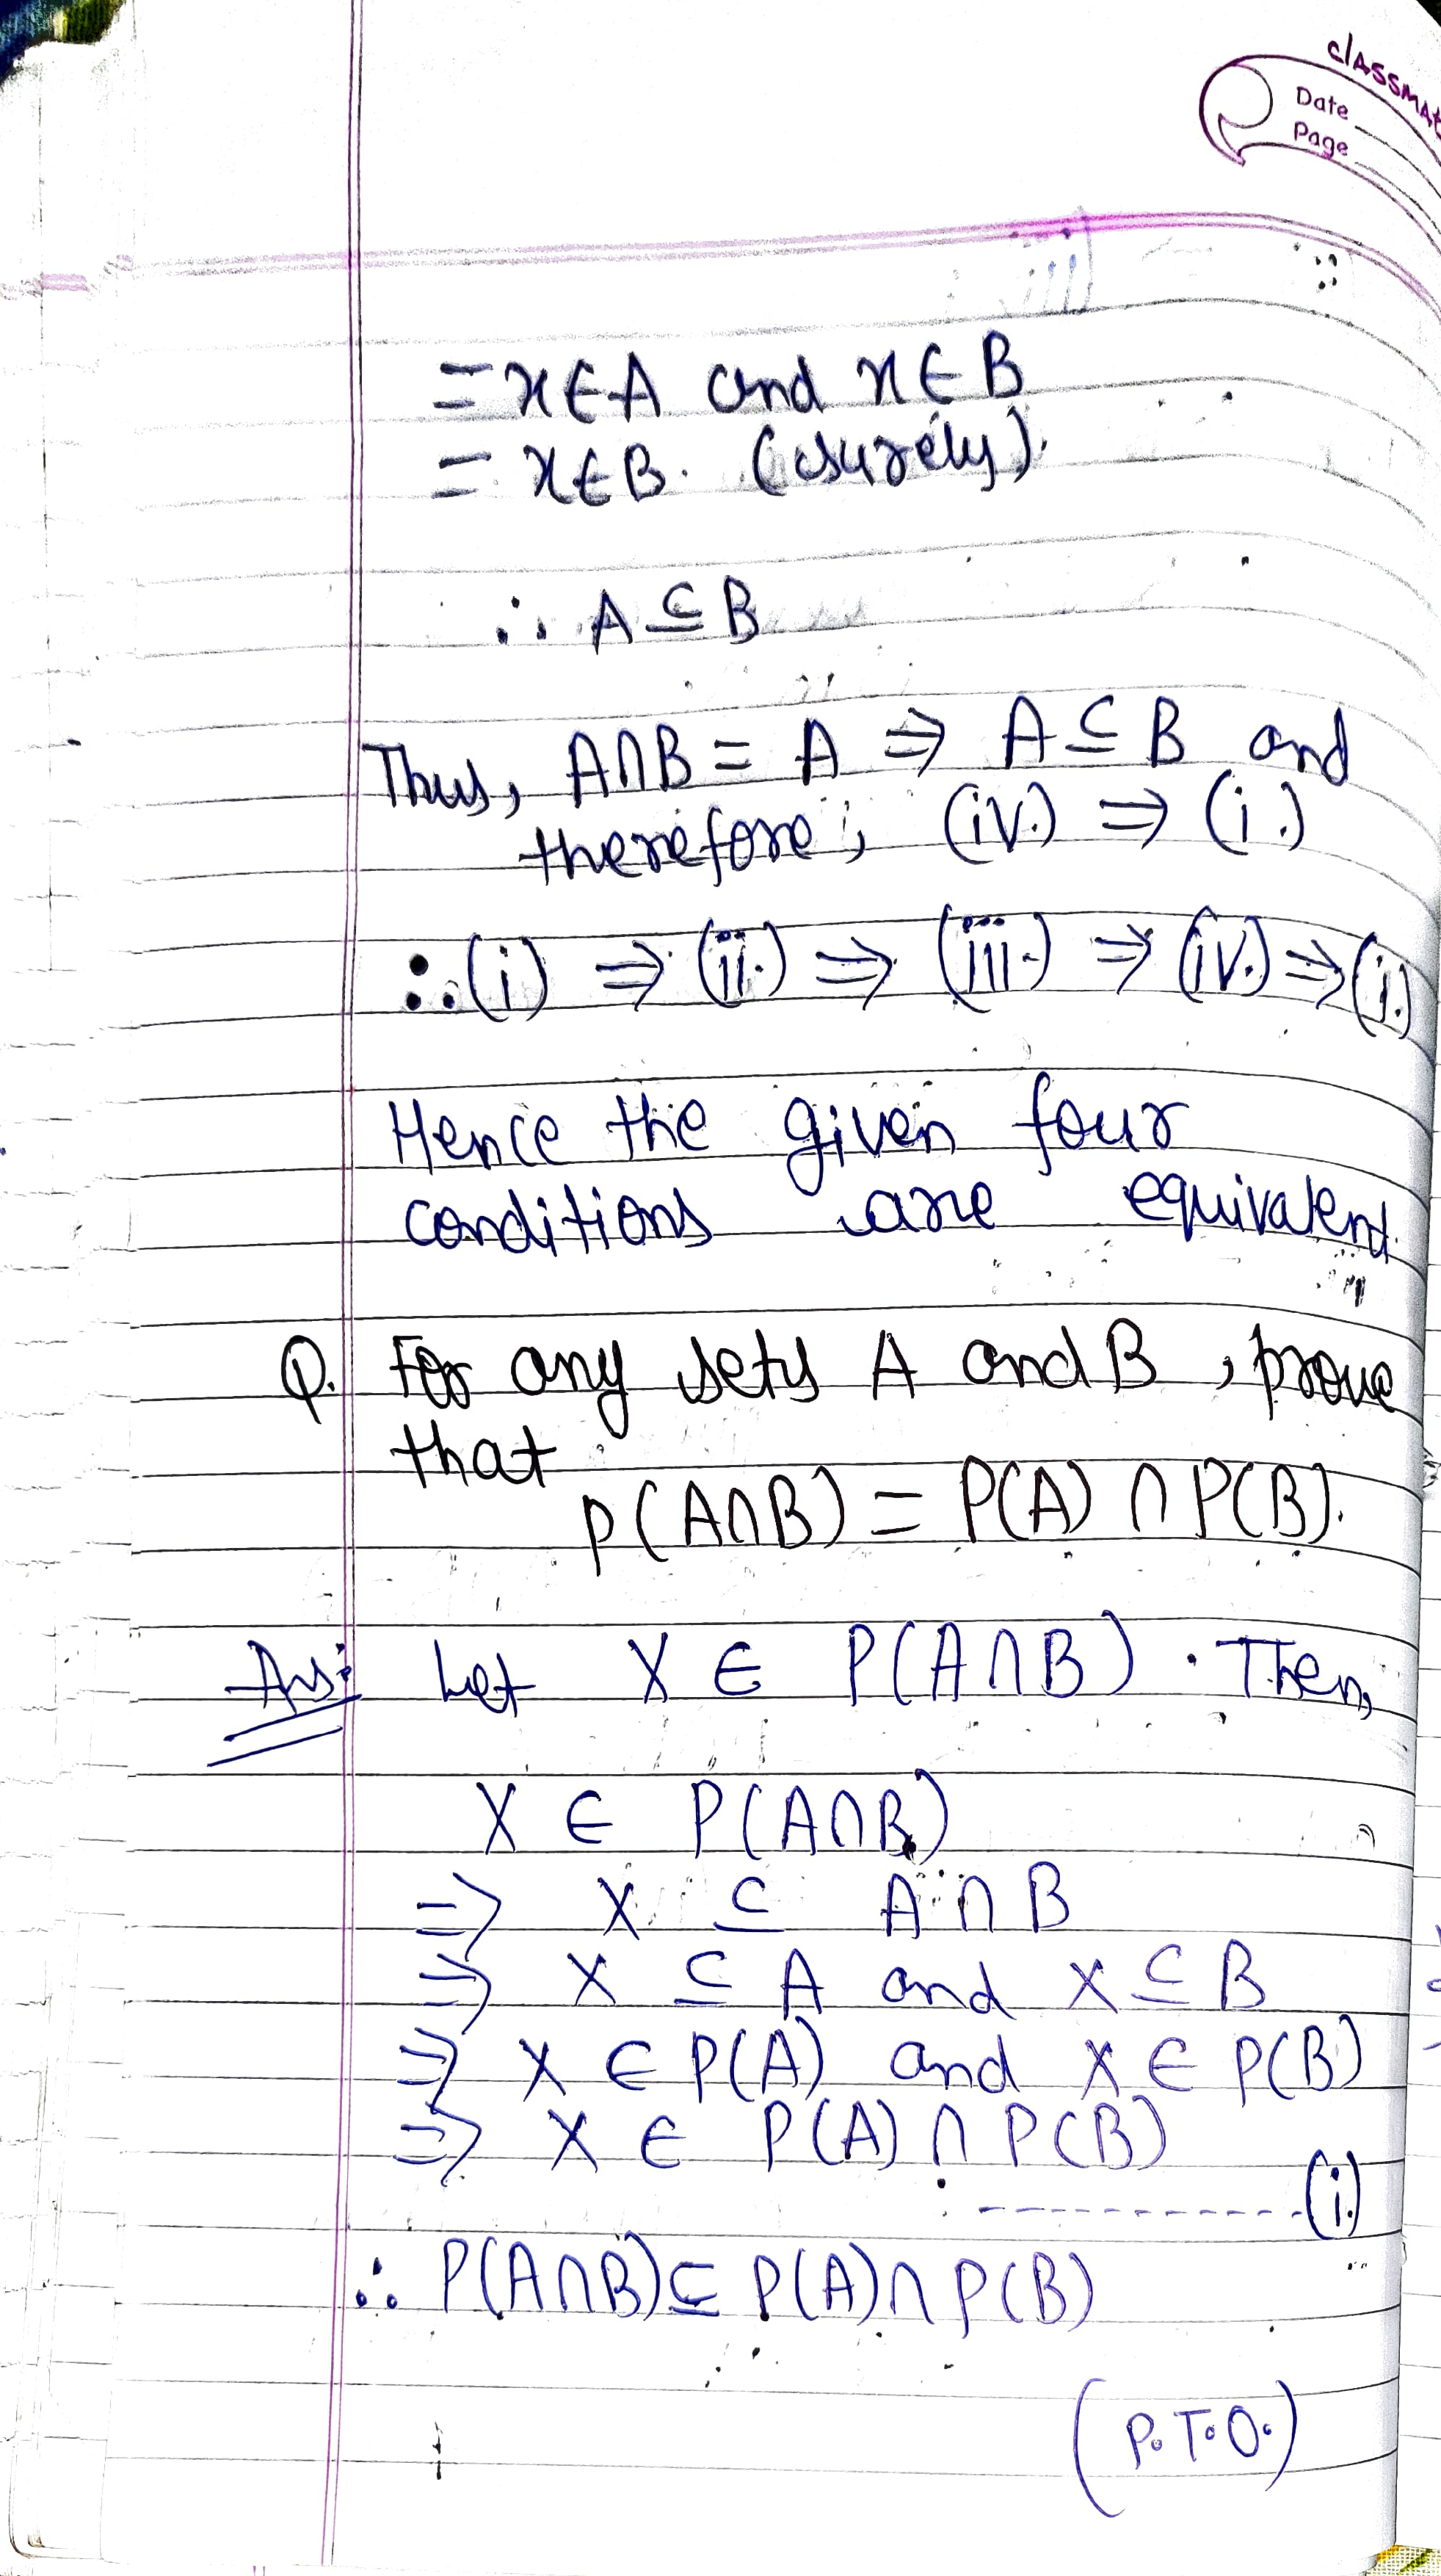 classmat
Date
Page
= x∈A and x∈B
= x∈B. (surely).
∴ A⊆B
Thus, A∩B = A ⇒ A⊆B and
therefore, (iv.) ⇒ (i.)
∴ (i) ⇒ (ii.) ⇒ (iii.) ⇒ (iv.) ⇒ (i.)
Hence the given four
conditions are equivalent.
Q. For any sets A and B, prove
that
P(A∩B) = P(A) ∩ P(B).
Ans: Let X ∈ P(A∩B). Then,
X ∈ P(A∩B)
⇒ X ⊆ A∩B
⇒ X ⊆ A and X ⊆ B
⇒ X ∈ P(A) and X ∈ P(B)
⇒ X ∈ P(A) ∩ P(B)
------------(i.)
∴ P(A∩B) ⊆ P(A)∩P(B)
(P.T.O.)